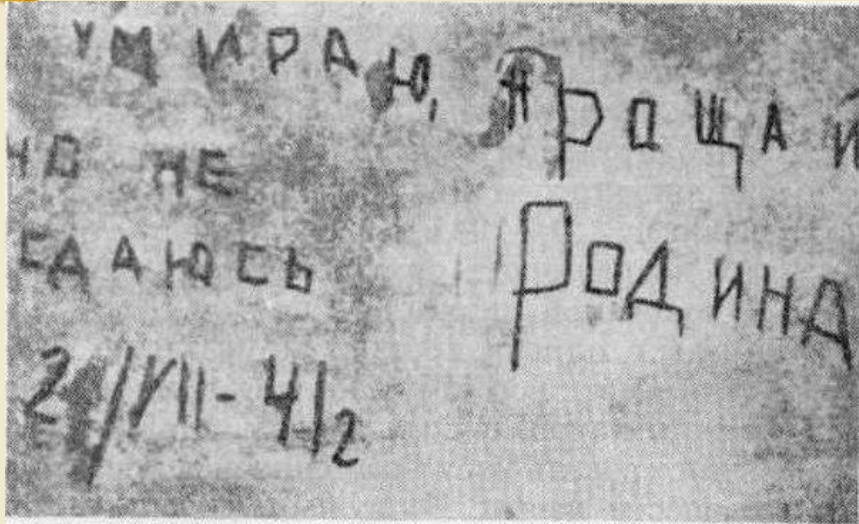 УМИРАЮ,
НО НЕ
СДАЮСЬ
ПРОЩАЙ
РОДИНА